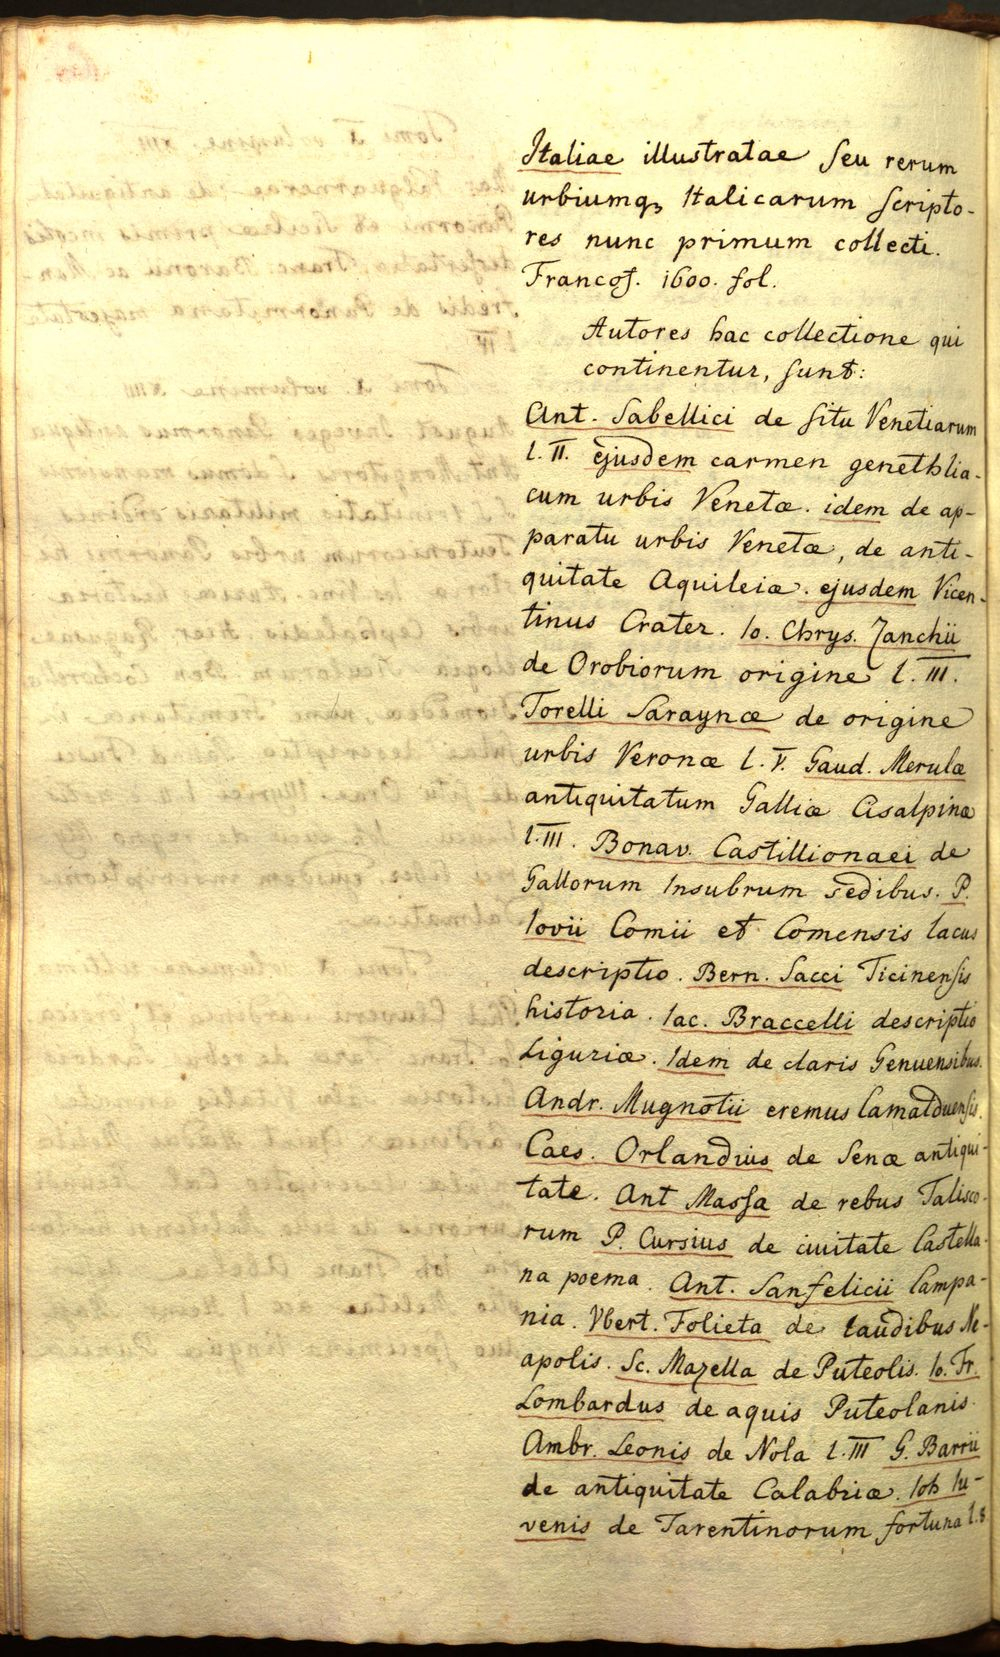 Italiae illustratae seu rerum
urbiumq3 Italicarum scripto-
res nunc primum collecti.
Francof. 1600. fol.
Autores hac collectione qui
continentur, sunt:
Ant. Sabellici de situ Venetiarum
l. II. ejusdem carmen genethlia-
cum urbis Venetæ. idem de ap-
paratu urbis Venetæ, de anti-
quitate Aquileiæ. ejusdem Vicen-
tinus Crater. Io. Chrys. Zanchii
de Orobiorum origine l. III.
Torelli Saraynæ de origine
urbis Veronæ l. V. Gaud. Merulæ
antiquitatum Galliæ Cisalpinæ
l. III. Bonav. Castillionaei de
Gallorum Insubrum sedibus. P.
Iovii Comii et Comensis lacus
descriptio. Bern. Sacci Ticinensis
historia. Iac. Braccelli descriptio
Liguriæ. Idem de claris Genuensibus.
Andr. Mugnotii eremus Camalduensis.
Caes. Orlandius de Senæ antiqui-
tate. Ant Massa de rebus Talisco-
rum P. Cursius de ciuitate Castella-
na poema. Ant. Sanfelicii Campa-
nia. Vbert. Folieta de laudibus Ne-
apolis. Sc. Mazella de Puteolis. Io. Fr.
Lombardus de aquis Puteolanis.
Ambr. Leonis de Nola l. III G. Barrii
de antiquitate Calabriæ. Ioh Iu-
venis de Tarentinorum fortuna l. 8